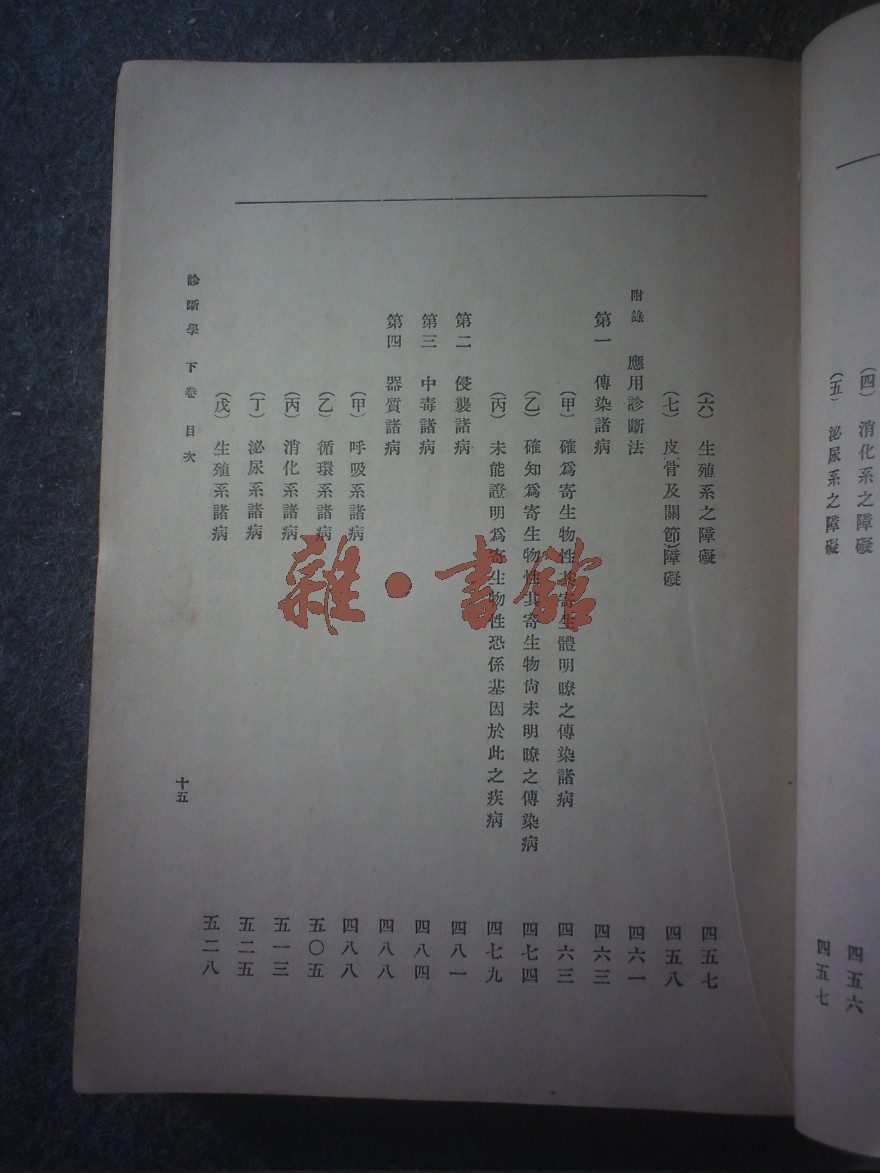 (四) 消化系之障礙 四五六
(五) 泌尿系之障礙 四五七
(六) 生殖系之障礙 四五七
(七) 皮骨及關節障礙 四五八
附錄 應用診斷法 四六一
第一 傳染諸病 四六三
(甲) 確爲寄生物性其寄生體明瞭之傳染諸病 四六三
(乙) 確知爲寄生物性其寄生物尙未明瞭之傳染病 四七四
(丙) 未能證明爲寄生物性恐係基因於此之疾病 四七九
第二 侵襲諸病 四八一
第三 中毒諸病 四八四
第四 器質諸病 四八八
(甲) 呼吸系諸病 四八八
(乙) 循環系諸病 五〇五
(丙) 消化系諸病 五一三
(丁) 泌尿系諸病 五二五
(戊) 生殖系諸病 五二八
診斷學 下卷 目次 十五
雜·書館